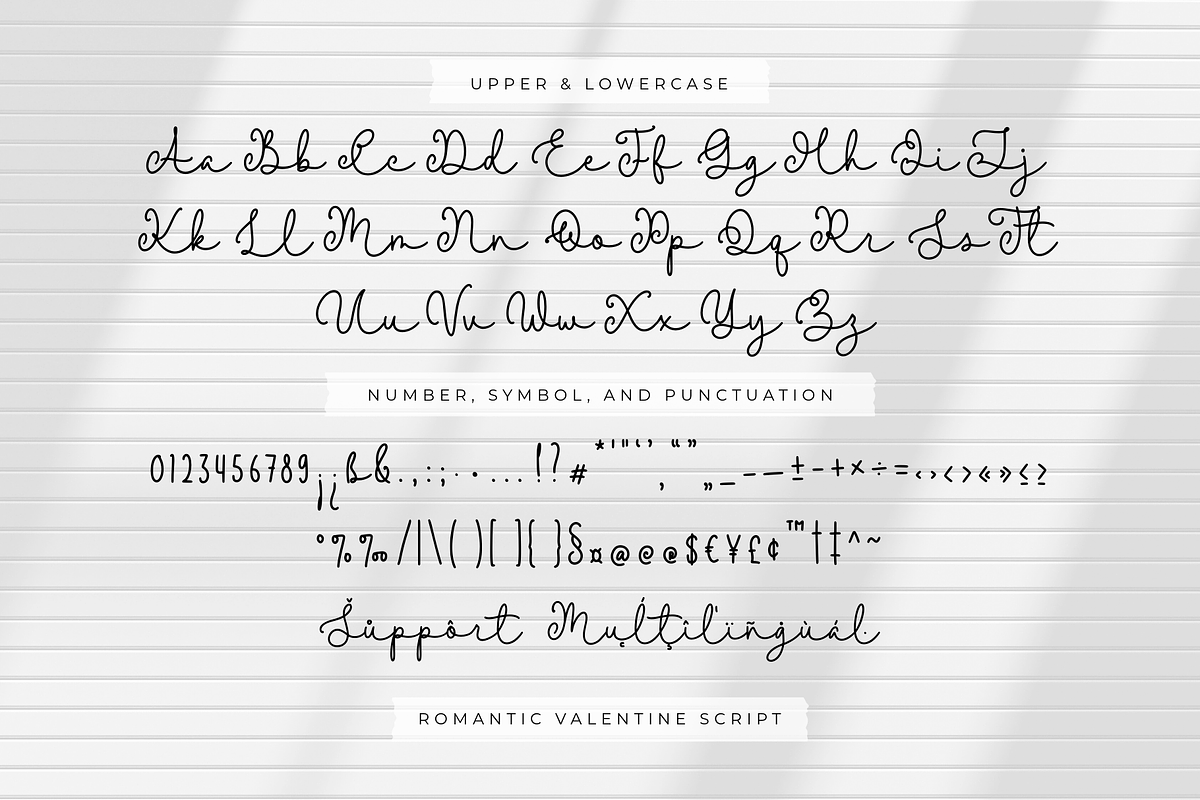 UPPER & LOWERCASE
Aa Bb Cc Dd Ee Ff Gg Hh Ii Jj
Kk Ll Mm Nn Oo Pp Qq Rr Ss Tt
Uu Vv Ww Xx Yy Zz
NUMBER, SYMBOL, AND PUNCTUATION
0123456789¡¿ß&.,:;·•...!?#*'"‘’“”‚„_-—±–+×÷=‹›<>«»≤≥
°%‰/|\()[]{}§¤@©®$€¥£¢™†‡^~
Šůppôrt Mųĺţîľïñġùáŀ
ROMANTIC VALENTINE SCRIPT